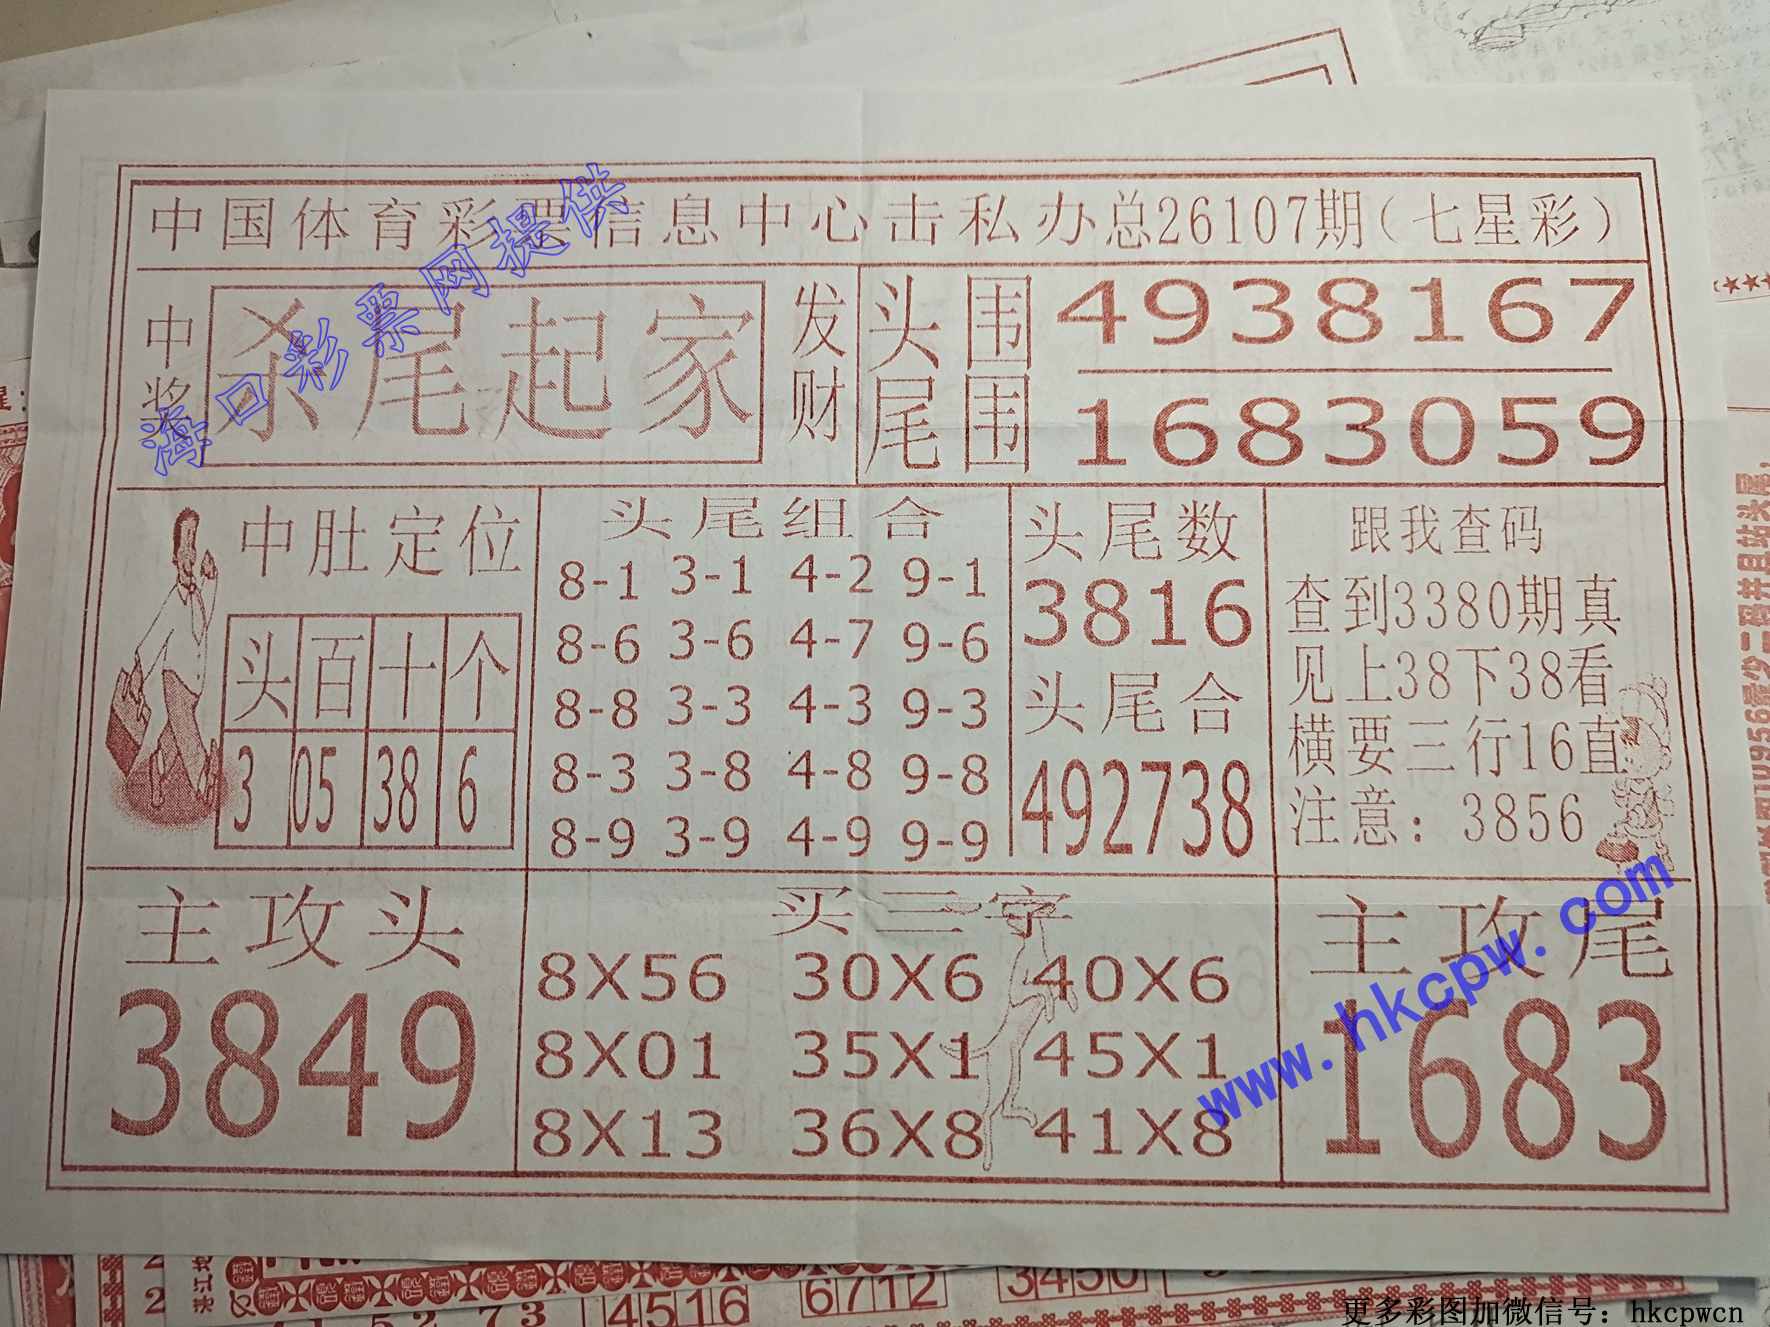 中国体育彩票信息中心击私办总26107期(七星彩)
中奖
杀尾起家
发财
头围 4938167
尾围 1683059
中肚定位
头 百 十 个
3 05 38 6
头尾组合
8-1 3-1 4-2 9-1
8-6 3-6 4-7 9-6
8-8 3-3 4-3 9-3
8-3 3-8 4-8 9-8
8-9 3-9 4-9 9-9
头尾数
3816
头尾合
492738
跟我查码
查到3380期真
见上38下38看
横要三行16直
注意：3856
主攻头
3849
买三字
8X56 30X6 40X6
8X01 35X1 45X1
8X13 36X8 41X8
主攻尾
1683
海口彩票网提供
www.hkcpw.com
4516 6712 3450
更多彩图加微信号：hkcpwcn